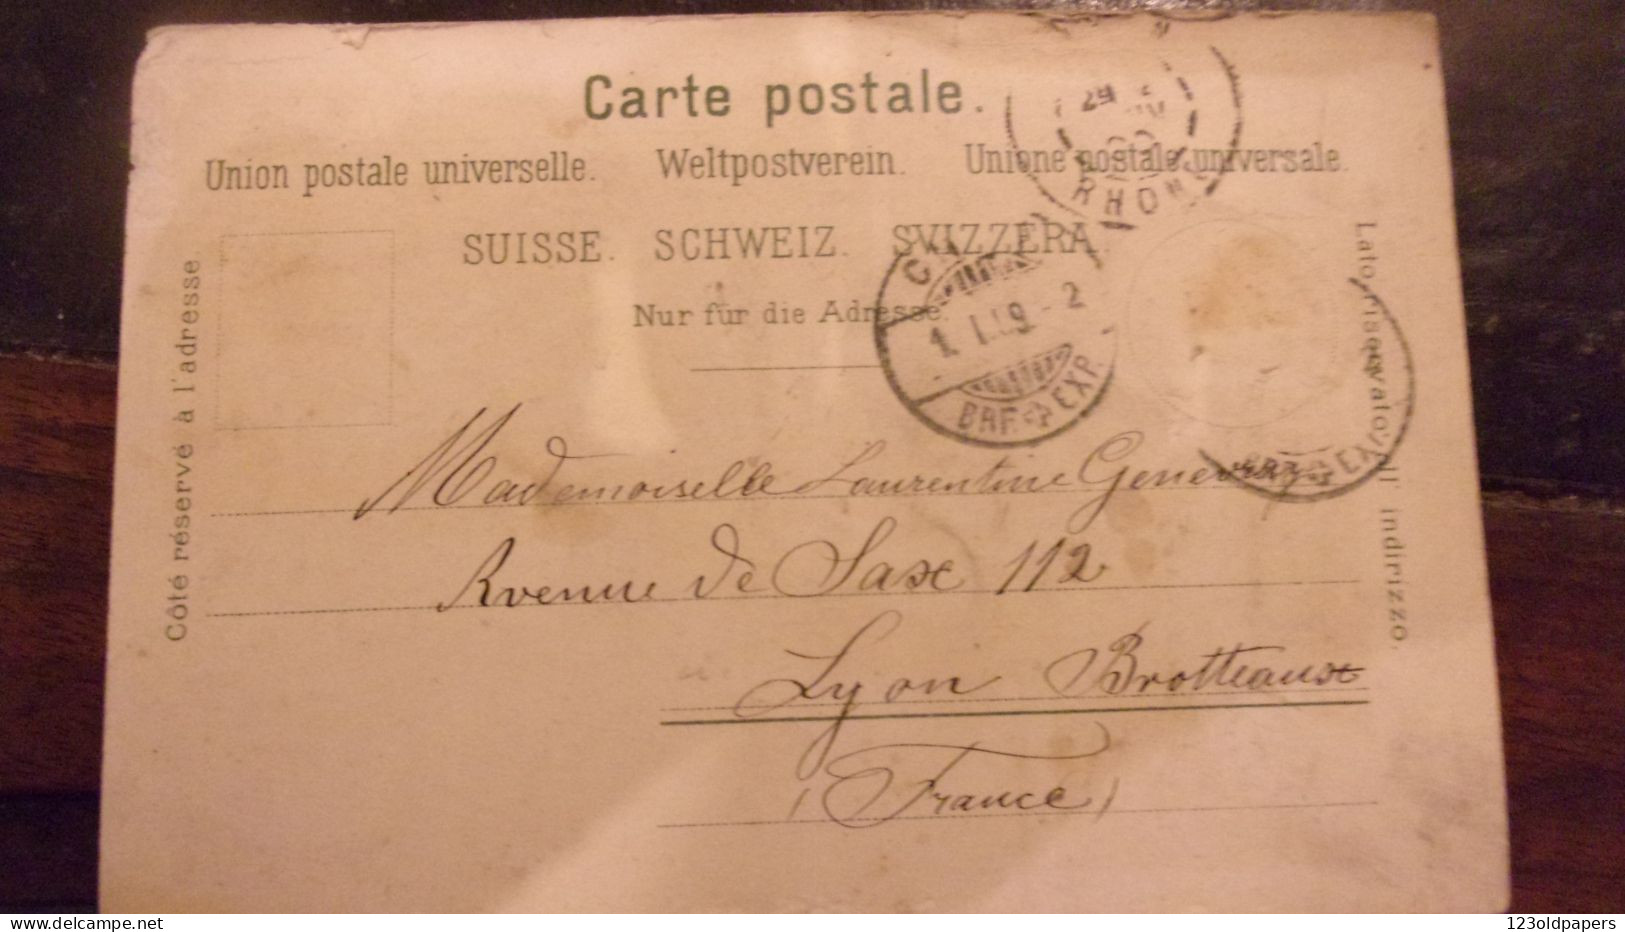 Carte postale.
Union postale universelle. Weltpostverein. Unione postale universale.
SUISSE. SCHWEIZ. SVIZZERA.
Nur für die Adresse.
Côté réservé à l'adresse.
Lato riservato all' indirizzo.
RHONE
BRF. EXP.
EXP
Mademoiselle Laurentine
Avenue de Saxe 112
Lyon Brotteaux
(France)
123oldpapers